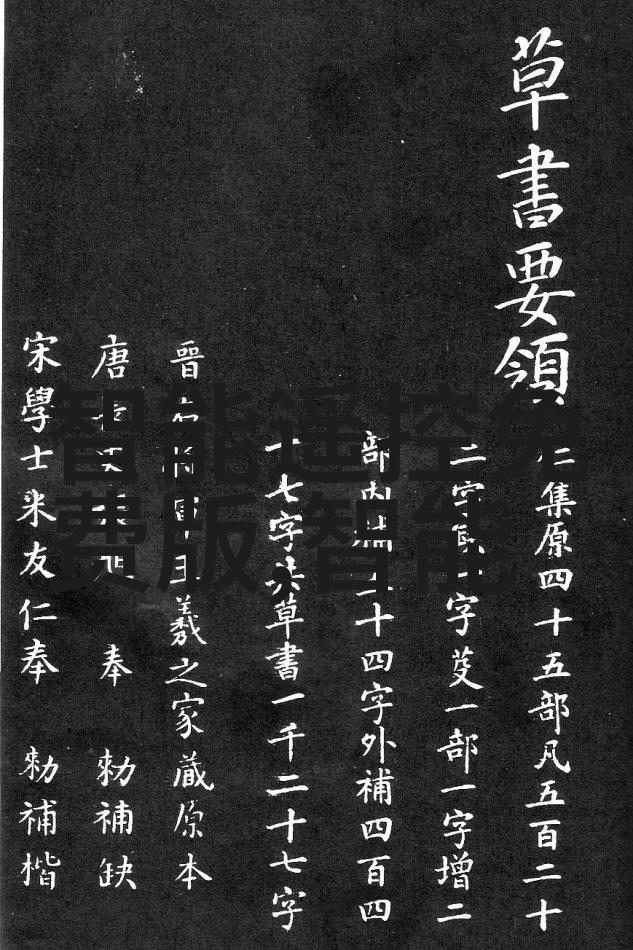 草書要領
仁集原四十五部凡五百二十
二字一字芟一部一字增二
部內二十四字外補四百四
十七字共草書一千二十七字
晉右將軍王羲之家藏原本
唐長史張旭 奉 勅補缺
宋學士米友仁奉 勅補楷
智能遥控免
费版智能